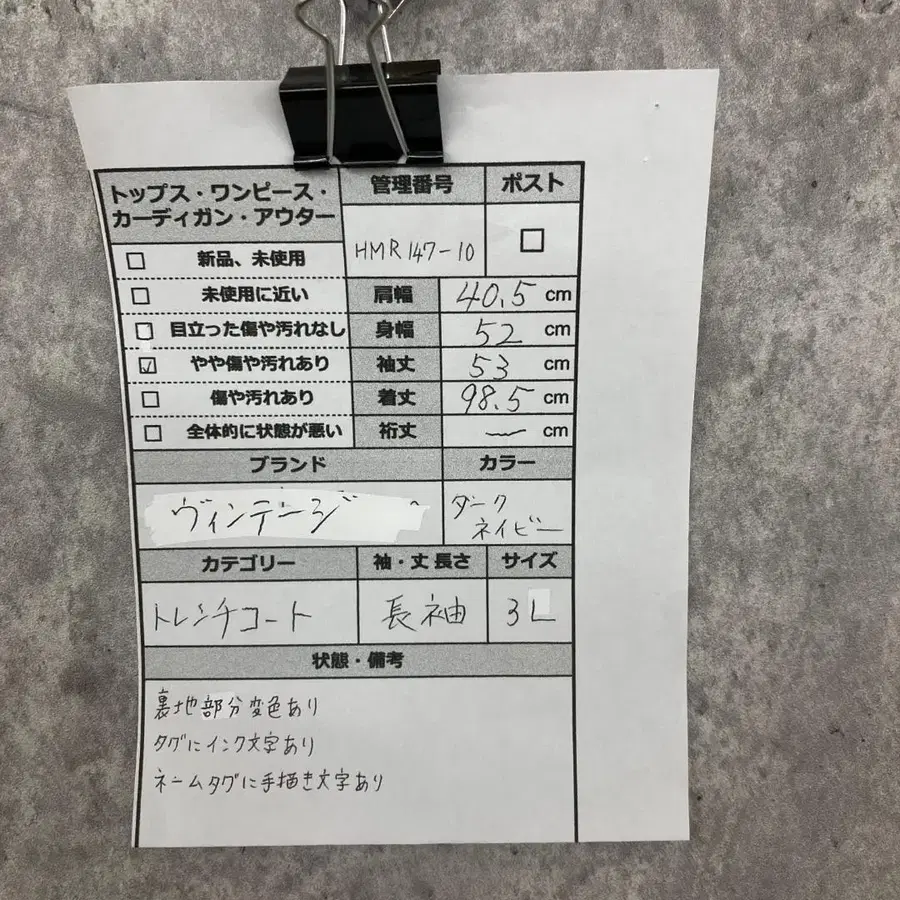 トップス・ワンピース・
カーディガン・アウター
管理番号
ポスト
HMR147-10
新品、未使用
未使用に近い
目立った傷や汚れなし
やや傷や汚れあり
傷や汚れあり
全体的に状態が悪い
肩幅 40.5 cm
身幅 52 cm
袖丈 53 cm
着丈 98.5 cm
裄丈 — cm
ブランド
カラー
ヴィンテージ
ダーク
ネイビー
カテゴリー
袖・丈 長さ
サイズ
トレンチコート
長袖
3L
状態・備考
裏地部分変色あり
タグにインク文字あり
ネームタグに手描き文字あり